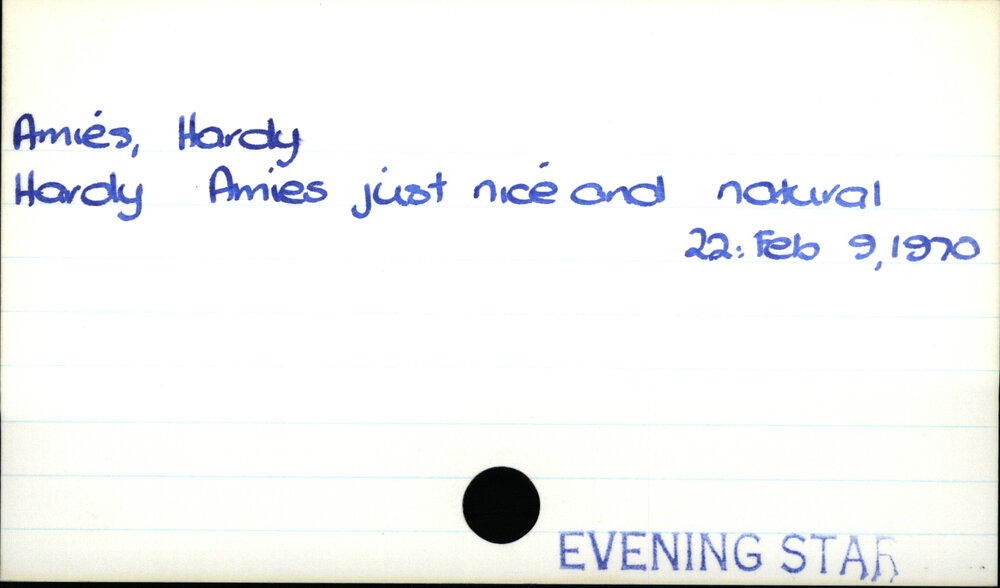 Amiés, Hardy
Hardy Amies just nicé and natural
22: Feb 9, 1970
EVENING STAR